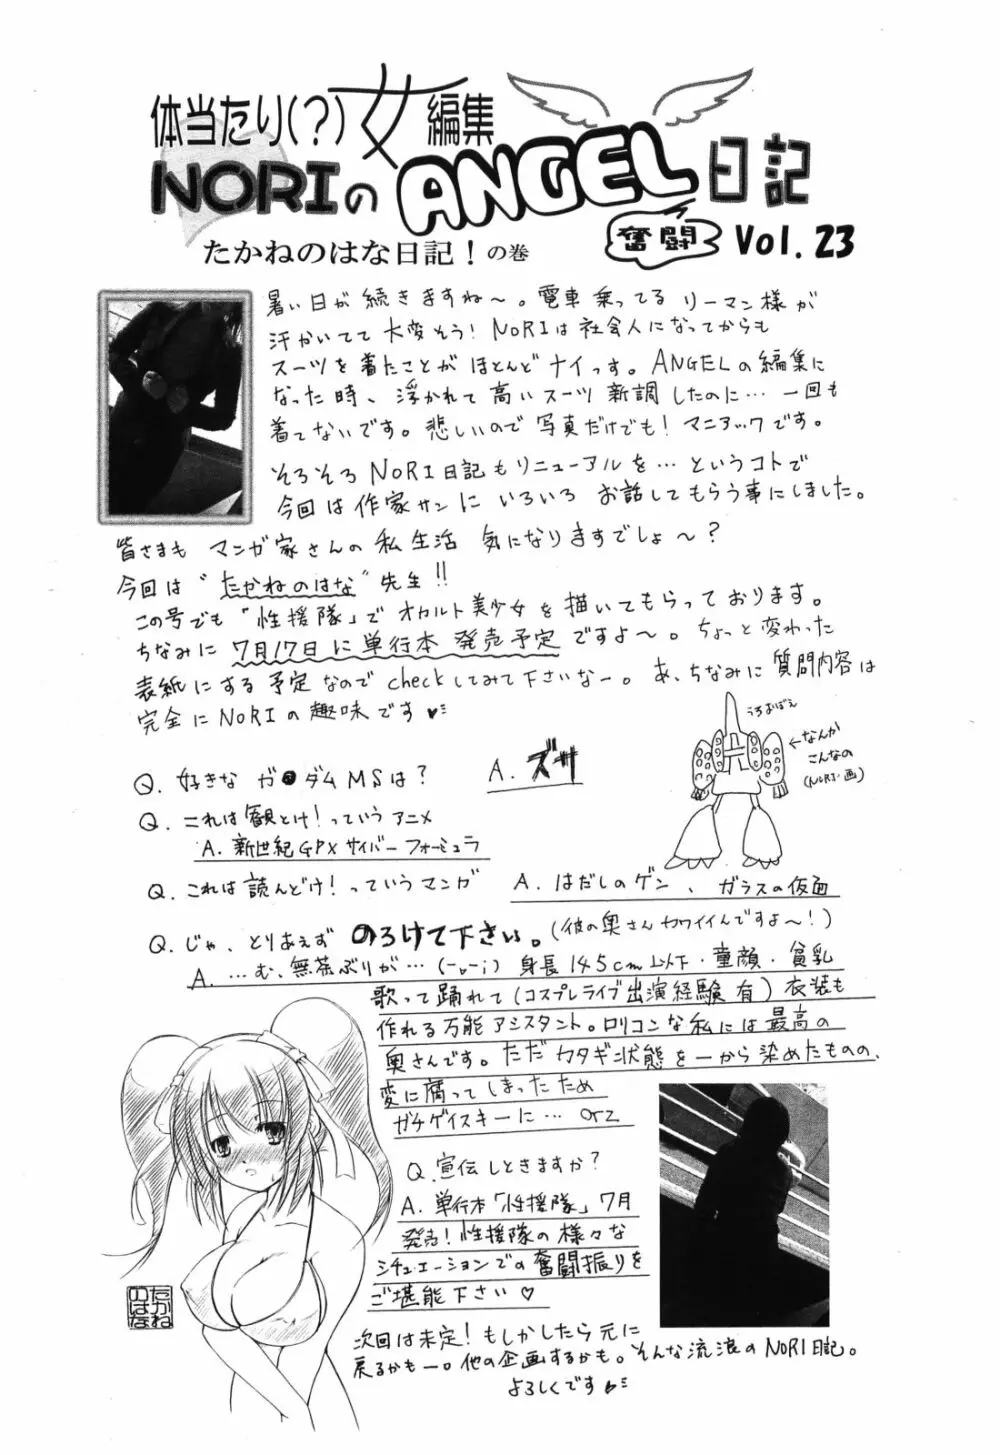 体当たり(？)女編集
NORIのANGEL日記
奮闘 Vol. 23
たかねのはな日記！の巻
暑い日が続きますね〜。電車乗ってるリーマン様が
汗かいてて大変そう！NORIは社会人になってからも
スーツを着たことがほとんどナイっす。ANGELの編集に
なった時、浮かれて高いスーツ新調したのに…一回も
着てないです。悲しいので写真だけでも！マニアックです。
そろそろNORI日記もリニューアルを…というコトで
今回は作家サンにいろいろお話してもらう事にしました。
皆さまもマンガ家さんの私生活気になりますでしょ〜？
今回は“たかねのはな”先生!!
この号でも「性援隊」でオカルト美少女を描いてもらっております。
ちなみに7月17日に単行本発売予定ですよ〜。ちょっと変わった
表紙にする予定なのでcheckしてみて下さいなー。あ、ちなみに質問内容は
完全にNORIの趣味です
うろおぼえ
←なんか
こんなの
(NORI・画)
Q. 好きなガ●ダムMSは？
A. ズサ
Q. これは観とけ！っていうアニメ
A. 新世紀GPXサイバーフォーミュラ
Q. これは読んどけ！っていうマンガ
A. はだしのゲン、ガラスの仮面
Q. じゃ、とりあえずのろけて下さい。(彼の奥さんカワイイんですよ〜！)
A. …む、無茶ぶりが…(-_-;)身長145cm以下・童顔・貧乳
歌って踊れて(コスプレライブ出演経験有)衣装も
作れる万能アシスタント。ロリコンな私には最高の
奥さんです。ただカタギな状態を一から染めたものの、
変に腐ってしまったため
ガチゲイスキーに… orz
Q. 宣伝しときますか？
A. 単行本「性援隊」7月
発売！性援隊の様々な
シチュエーションでの奮闘振りを
ご堪能下さい♡
たかね
のはな
次回は未定！もしかしたら元に
戻るかもー。他の企画するかも。そんな流浪のNORI日記。
よろしくです